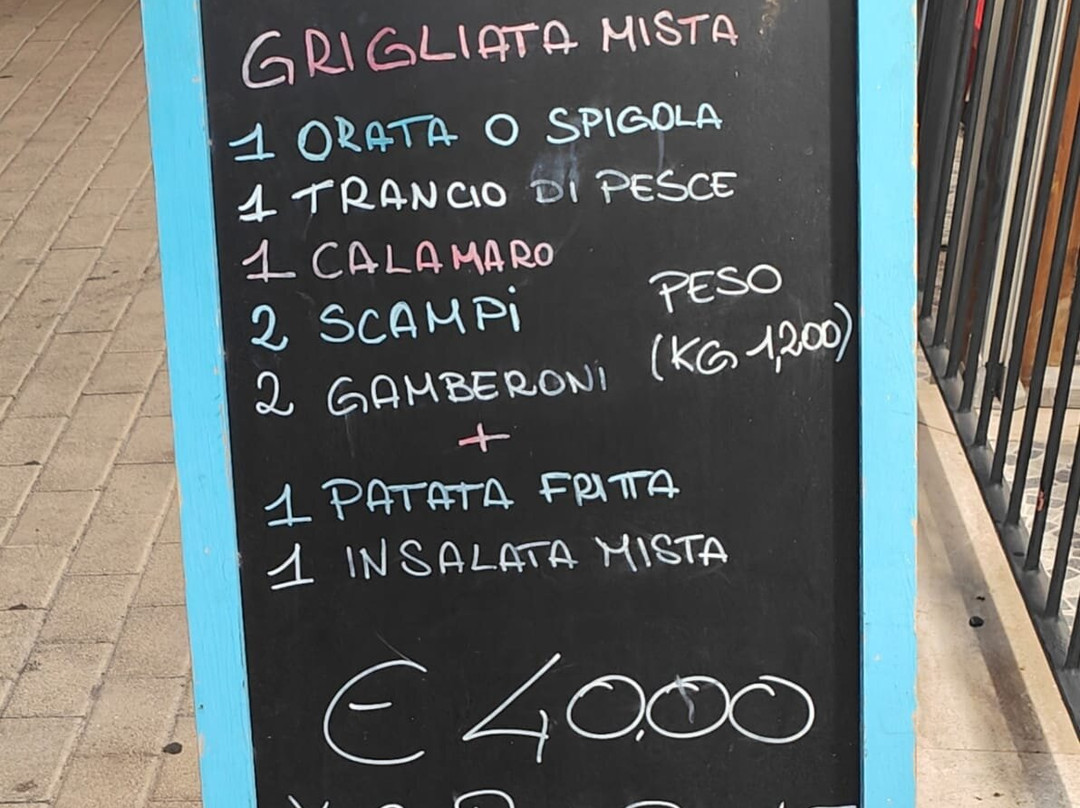 GRIGLIATA MISTA
1 ORATA O SPIGOLA
1 TRANCIO DI PESCE
1 CALAMARO
2 SCAMPI
PESO
(KG 1,200)
2 GAMBERONI
+
1 PATATA FRITTA
1 INSALATA MISTA
€ 40,00